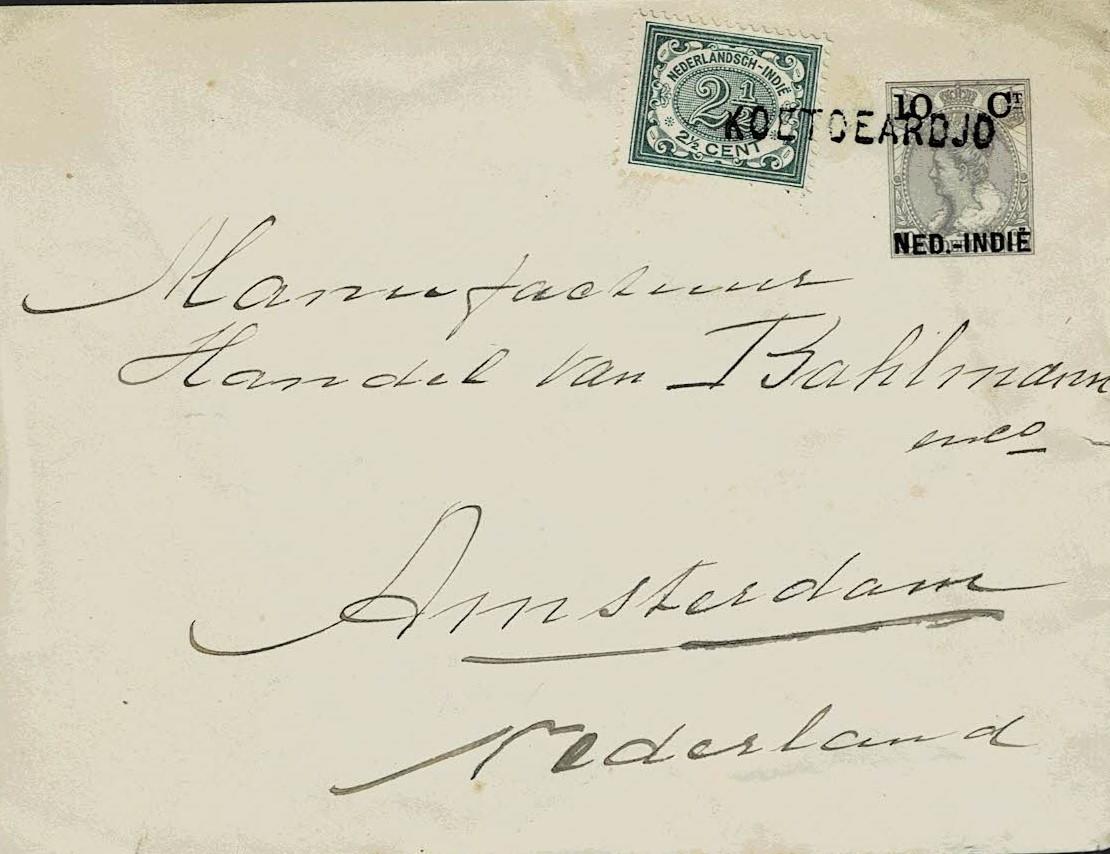 NEDERLANDSCH-INDIË
2½
2½ CENT
10 CT
KOETOEARDJO
NED.-INDIË
Manufactuur
Handel van Bahlmann
en co
Amsterdam
Nederland